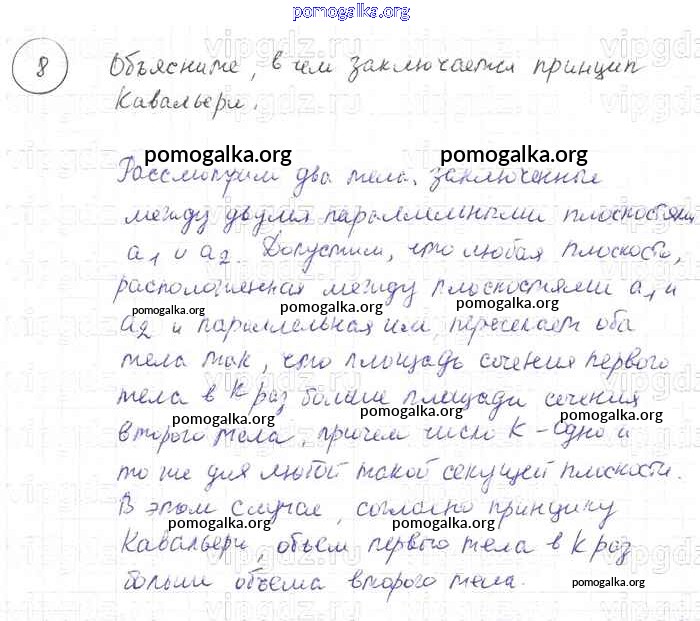 pomogalka.org
8 Объясните, в чем заключается принцип
Кавальери.
pomogalka.org pomogalka.org
Рассмотрим два тела, заключенные
между двумя параллельными плоскостями
a1 и a2. Допустим, что любая плоскость,
расположенная между плоскостями a1 и
pomogalka.org pomogalka.org pomogalka.org
a2 и параллельная им, пересекает оба
тела так, что площадь сечения первого
тела в K раз больше площади сечения
pomogalka.org pomogalka.org pomogalka.org
второго тела, причем число K - одно и
то же для любой такой секущей плоскости.
В этом случае, согласно принципу
pomogalka.org pomogalka.org pomogalka.org
Кавальери, объем первого тела в K раз
больше объема второго тела.
pomogalka.org